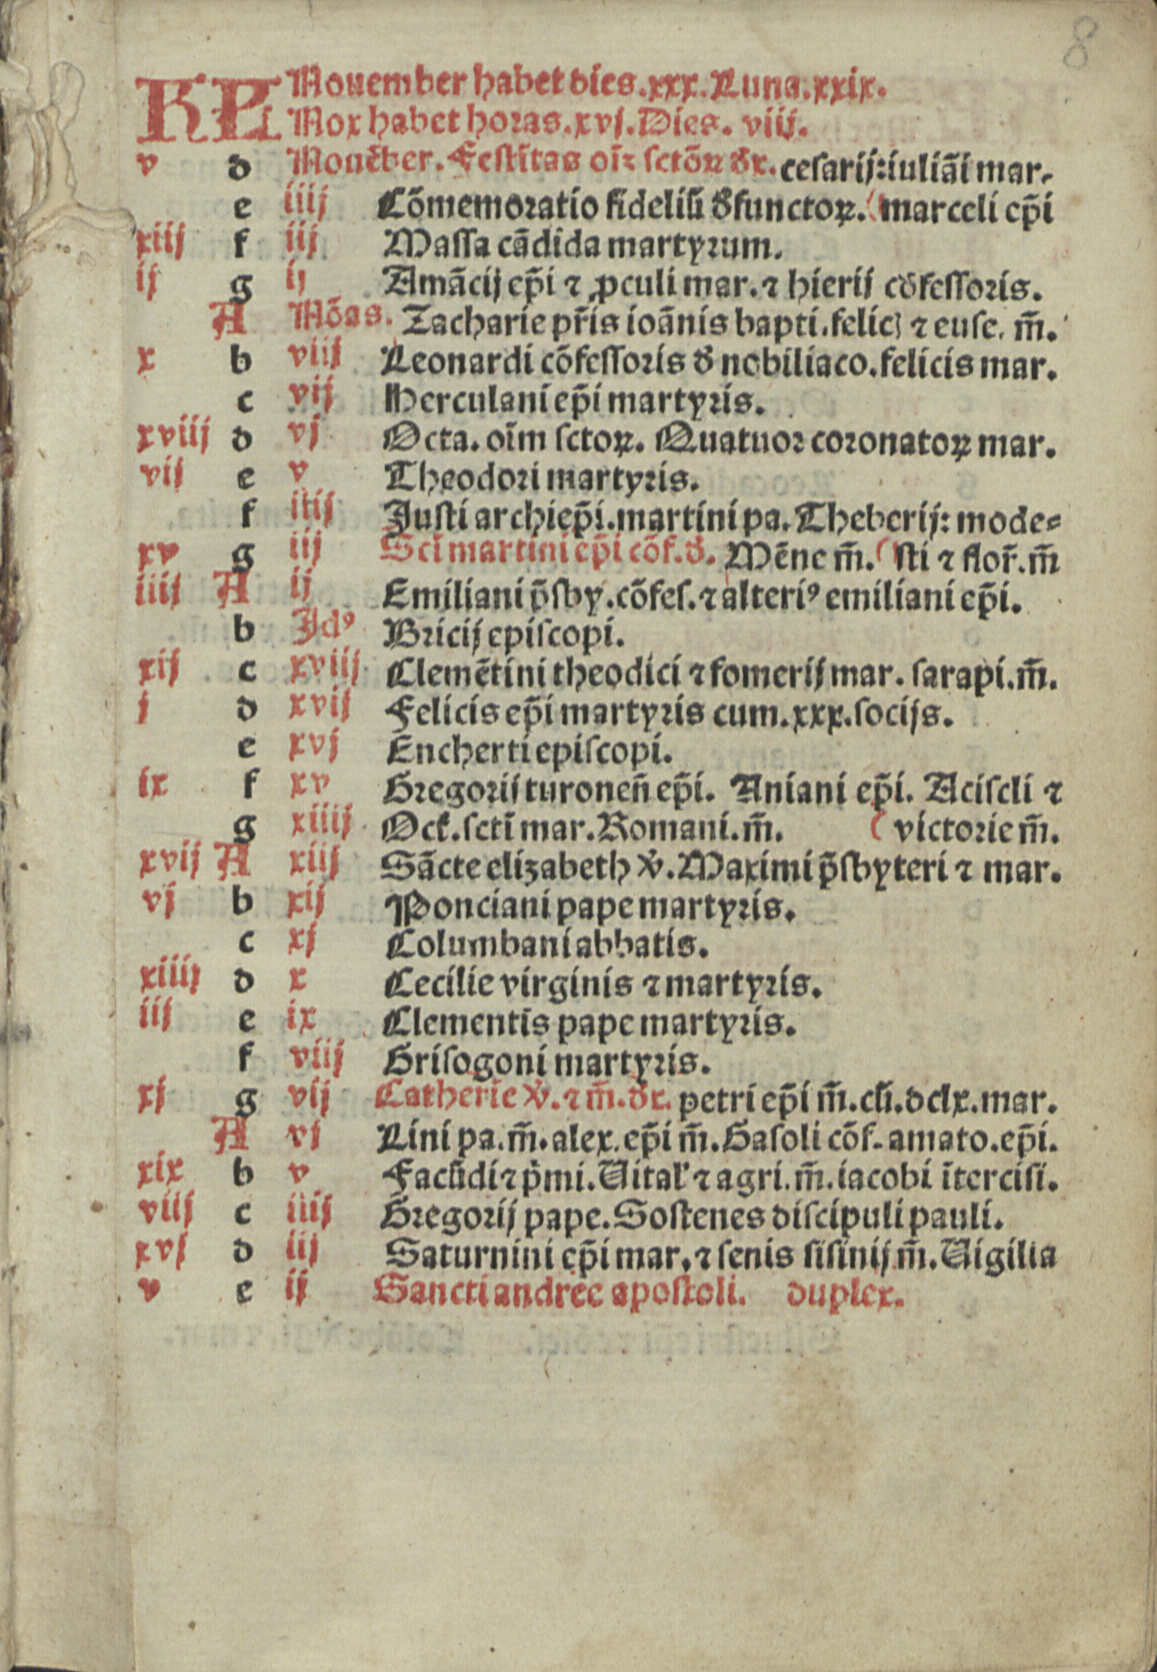 8
KL November habet dies.xxx.Luna.xxix.
Nox habet horas.xvj.Dies. viij.
v d Novẽber. Festitas oĩꝫ sctõꝝ dx. cesarij:iuliãi mar.
e iiij Cõmemoratio fideliũ defunctoꝝ. (marceli ep̃i
xiij f iij Massa cãdida martyrum.
ij g ij Amãcij ep̃i ⁊ ꝓculi mar. ⁊ hierij cõfessoris.
A Nõas. Zacharie pr̃is ioãnis bapti.felic ⁊ euse. m̃.
x b viij Leonardi cõfessoris d nobiliaco.felicis mar.
c vij Herculani ep̃i martyris.
xviij d vj Octa. oĩm sctoꝝ. Quatuor coronatoꝝ mar.
vij e v Theodori martyris.
f iiij Justi archiep̃i.martini pa. Theberij: mode-
xv g iij Scĩ martini ep̃i cõf.d. Mẽne m̃. (sti ⁊ flor̃. m̃
iiij A ij Emiliani p̃sby.cõfes. ⁊ alteriꝰ emiliani ep̃i.
b Jdꝰ Bricij episcopi.
xij c xviij Clemẽtini theodici ⁊ fomerij mar. sarapi.m̃.
j d xvij Felicis ep̃i martyris cum.xxx.socijs.
e xvj Encherti episcopi.
ix f xv Gregorij turoneñ ep̃i. Aniani ep̃i. Aciscli ⁊
g xiiij Oct.sctĩ mar.Romani.m̃. (victorie m̃.
xvij A xiij Sãcte elizabeth v̾. Maximi p̃sbyteri ⁊ mar.
vj b xij Ponciani pape martyris.
c xj Columbani abbatis.
xiiij d x Cecilie virginis ⁊ martyris.
iij e ix Clementis pape martyris.
f viij Grisogoni martyris.
xj g vij Catherĩe v̾. ⁊ m̃. dx. petri ep̃i m̃.cũ.dclx.mar.
A vj Lini pa.m̃.alex.ep̃i m̃.Gasoli cõf. amato.ep̃i.
xix b v Facũdi ⁊ p̃mi.Vital' ⁊ agri.m̃.iacobi ĩtercisi.
viij c iiij Gregorij pape.Sostenes discipuli pauli.
xvj d iij Saturnini ep̃i mar. ⁊ senis sisinij m̃.Vigilia
v e ij Sancti andree apostoli. duplex.